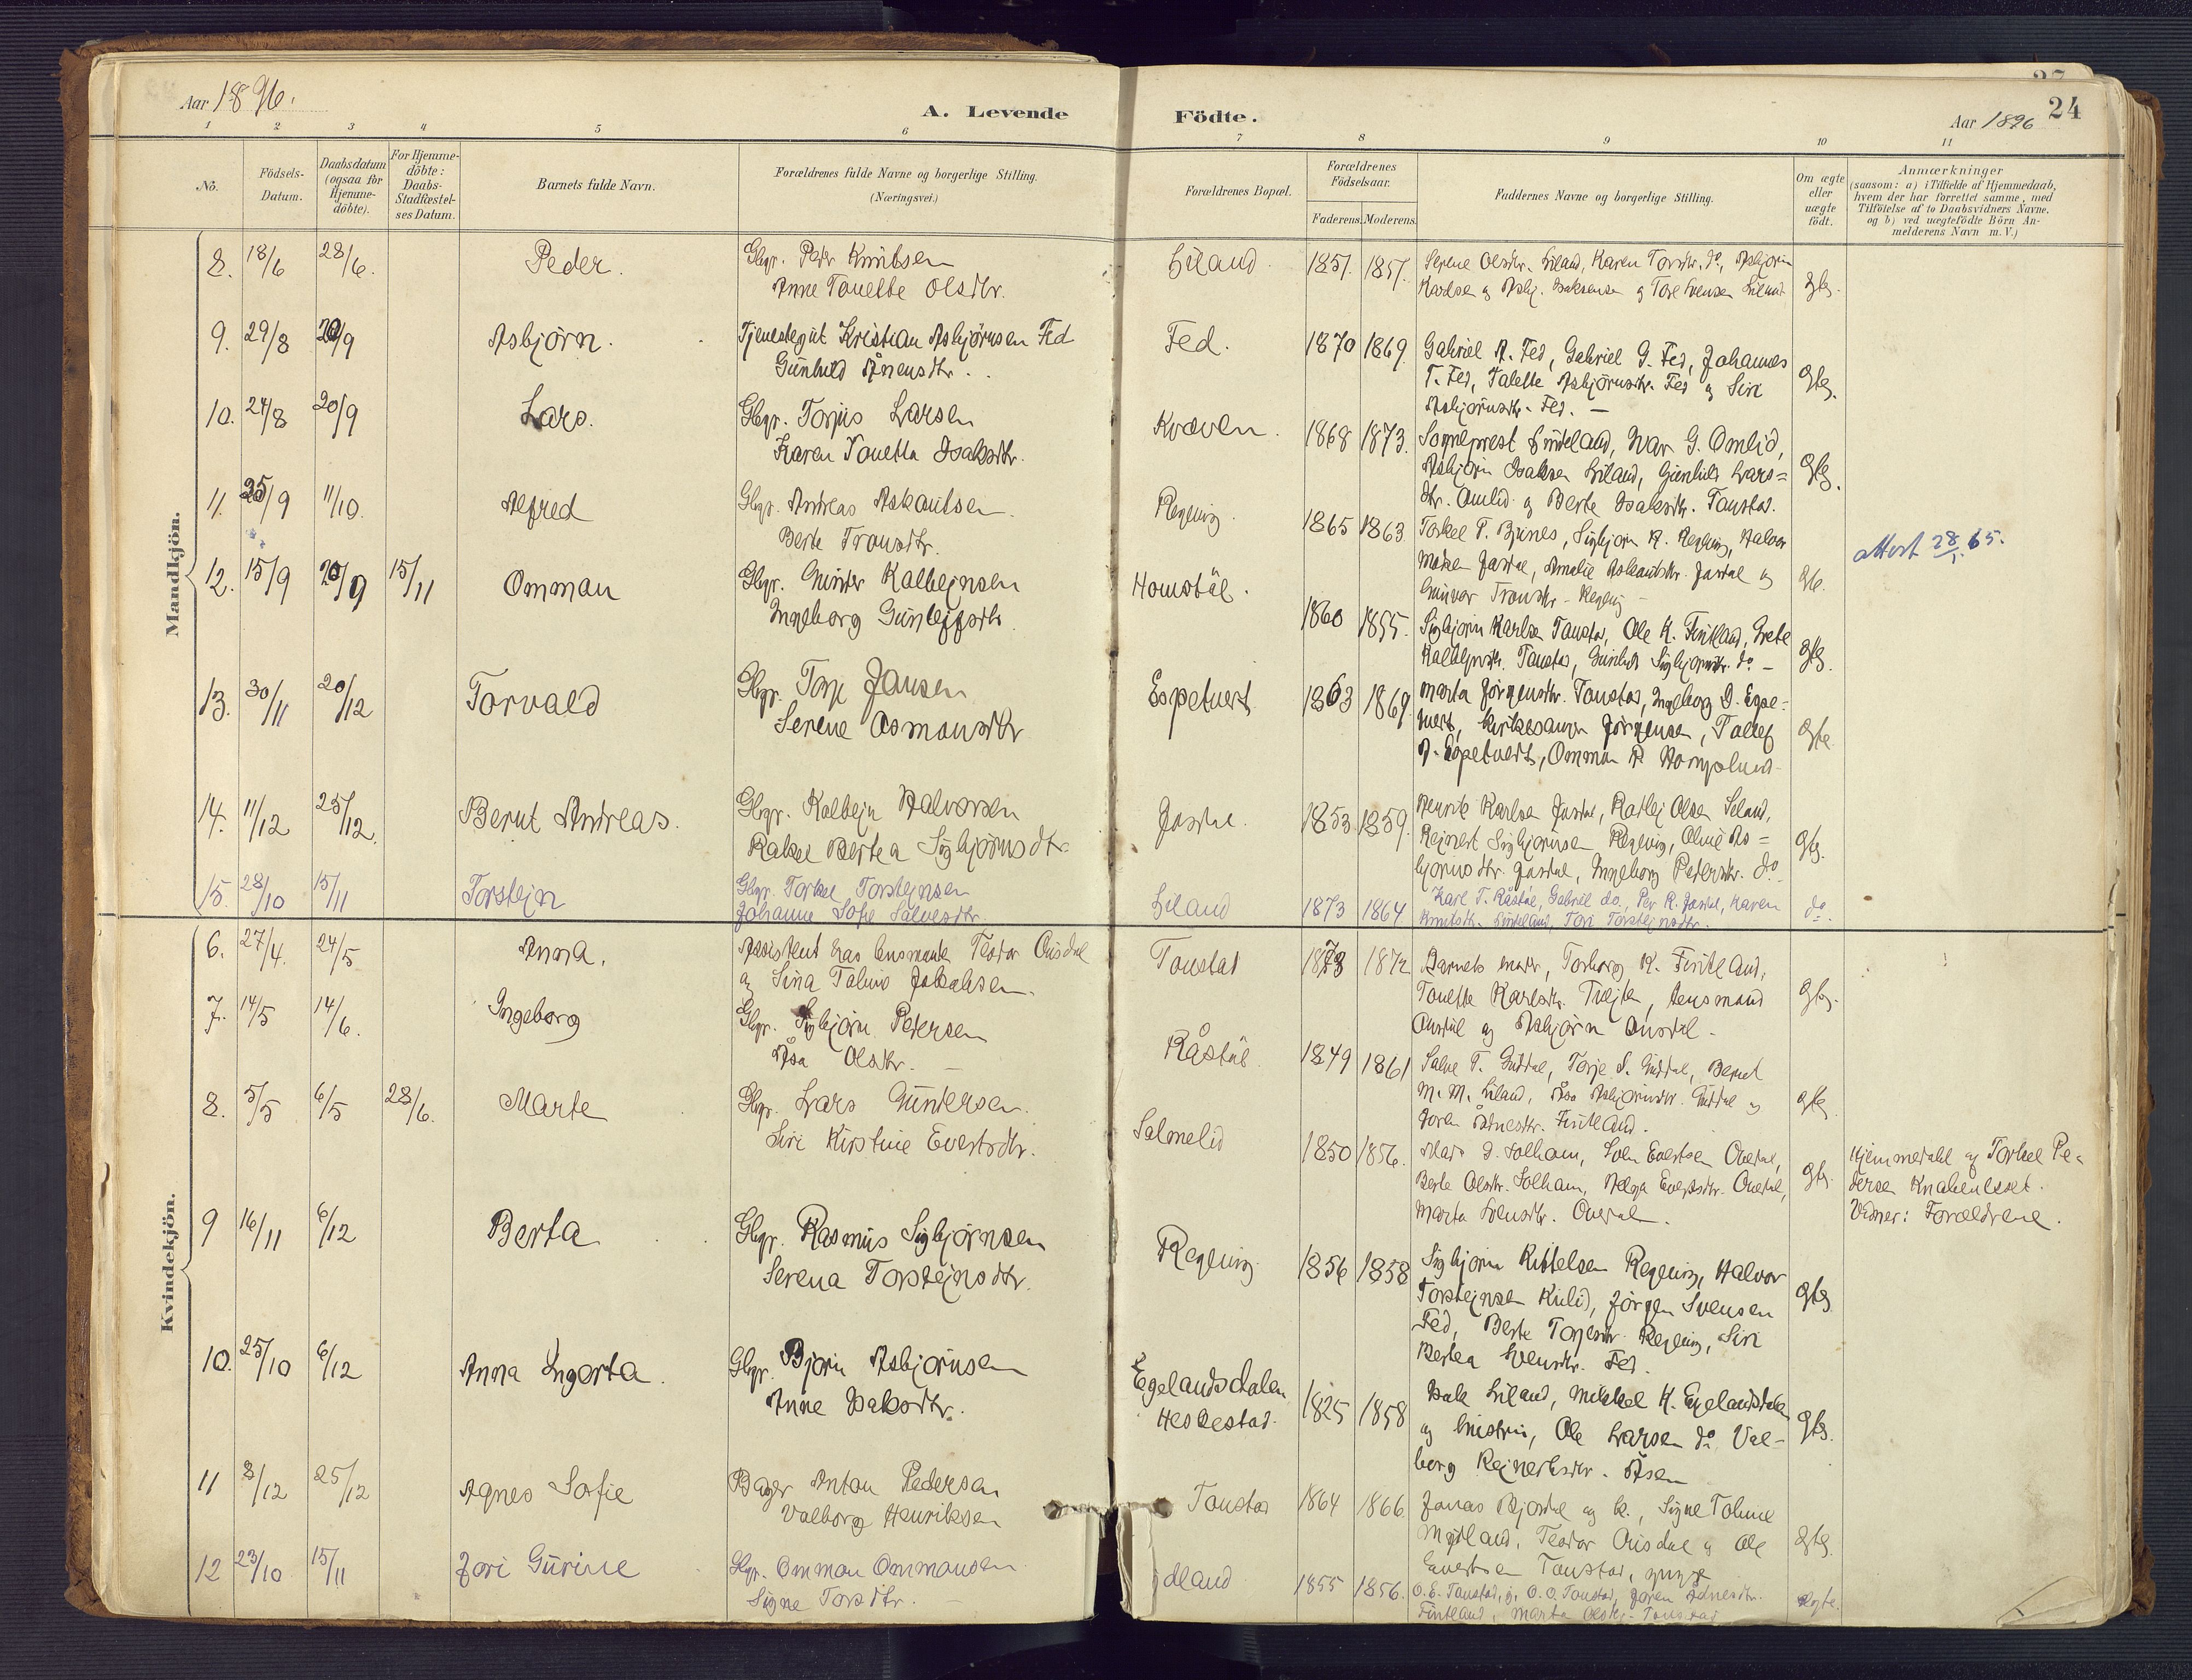 Aar 1896.
A. Levende Födte.
Aar 1896
24
1 2 3 4 5 6 7 8 9 10 11
No.
Födsels-Datum.
Daabsdatum (ogsaa for Hjemmedöbte).
For Hjemmedöbte: Daabs-Stadfæstelses Datum.
Barnets fulde Navn.
Forældrenes fulde Navne og borgerlige Stilling.
(Næringsvei.)
Forældrenes Bopæl.
Forældrenes Födselsaar.
Faderens. Moderens.
Faddernes Navne og borgerlige Stilling.
Om ægte eller uægte födt.
Anmærkninger
(saasom: a) i Tilfælde af Hjemmedaab,
hvem der har forrettet samme, med
Tilföielse af to Daabsvidners Navne,
og b) ved uægtefödte Börn Anmelderens Navn m. V.)
Mandkjön.
8. 18/6 28/6. Peder. Gbgr. Peder Knutsen
Anne Tonette Olsdtr.
Liland 1857. 1857. Serene Olsdtr. Liland, Karen Torsdtr. do, Asbjørn
Karlsen og Asbj. Isaksen og Tore Svensen Liland
9. 29/8 20/9 Asbjörn. Tjenestegut Kristian Asbjörnsen Fed
Gunhild Ånensdtr.
Fed. 1870 1869. Gabriel A. Fed, Gabriel G. Fed, Johannes
T. Fed, Talette Asbjörnsdtr. Fed og Siri
Asbjörnsdtr. Fed. —
10. 24/8 20/9 Lars. Gbgr. Torjus Larsen
Karen Tonetta Isaksdtr.
Kvæven. 1868 1873. Sogneprest Lindeland, Ivar G. Omlid,
Asbjörn Isaksen Liland, Gunhild Lars=
dtr. Omlid og Berte Isaksdtr. Tonstad.
11. 25/9 11/10. Alfred Gbgr. Andreas Askoutsen.
Berte Tronsdtr.
Regevig. 1865 1863. Torkel T. Bjunes, Sigbjörn R. Regevig, Halvor
Josdal, Amalie Josdal og
Gunvor Tronsdtr. Regevig
attest 28/1 65.
12. 15/9 20/9 15/11 Omman Gbgr. Gunder Kalleynsen
Ingeborg Gunleifsdtr.
Homstöl. 1860 1855. Sigbjörn Karlsen Tonstad, Ole K. Fintland, Grete
Kallejnsdtr. Tonstad, Gunhild Sigbjörnsdtr. do —
13. 30/11 20/12 Torvald Gbgr. Torje Jansen
Serene Osmonsdtr
Espetveit 1863 1869. Marta Jörgensdtr. Tonstad, Ingeborg D. Espe-
tveit, Kirkesanger Jörgensen, Tollef
A. Espetveit, Omman R.
14. 11/12 25/12. Bernt Andreas. Gbgr. Kallejn Halvorsen
Rakel Bertea Sigbjörnsdtr
Josdal. 1853 1859. Henrik Karlsen Josdal, Ratlej Olsen Seland,
Rejnert Sigbjörnsen Regevig, Oline As=
björnsdtr. Josdal, Ingeborg Pedersdtr. do
15. 28/10 15/11 Torstejn Gbgr. Torkel Torstejnsen
Johanne Sofie Salvesdtr.
Liland 1873 1864 Karl T. Råstöl, Gabriel do., Per R. Josdal, Karen
Knutsdtr. Lindeland, Tori Torstejnsdtr. do.
Kvindekjön.
6. 27/4. 24/5 Anna. Assistent hos lensmanden Teodor Ousdal
og Sina Taline Jakobsen.
Tonstad 1873 1872 Barnets mor, Torborg K. Fintland,
Tonette Karlsdtr. Tvejten, Lensmand
Ousdal og Asbjörn Ousdal.
7. 14/5 14/6. Ingeborg Gbgr. Sigbjörn Pedersen
Åsa Olsdtr. —
Råstöl 1849 1861 Salve T. Guddal, Torje S. Guddal, Bernt
M. M. Liland, Åsa Asbjörnsdtr. Guddal og
Joren Ådnesdtr. Fintland.
8. 5/5 6/5 28/6. Marte Gbgr. Lars Guntersen.
Siri Kirstine Evertsdtr.
Salmelid 1850 1856. Mads D. Solham, Sven Evertsen Ovedal,
Berte Olsdtr. Solham, Helga Evertsdtr. Ovedal,
Marta Svensdtr. Ovedal.
Hjemmedöbt af Torkel Pe-
dersen Knabenlset.
Vidner: Forældrene.
9 16/11 6/12 Berta Gbgr. Rasmus Sigbjörnsen
Serena Torstejnsdtr.
Regevig 1856 1858 Sigbjörn Kittelsen Regevig, Halvor
Torstejnsen Kulid, Jörgen Svensen
Fed, Berte Torjesdtr. Regevig, Siri
Bertea Svensdtr. Fed.
10. 25/10 6/12 Anna Ingerta. Gbgr. Björn Asbjörnsen
Anne Isaksdtr.
Egelandsdalen
Heskestad. 1825 1858 Isak Liland, Mikkel H. Egelandsdalen
og hustru, Ole Larsen do. Val-
borg Rejnertsdtr. Åsen
11 8/12 25/12 Agnes Sofie Bager Anton Pedersen
Valborg Henriksen
Tonstad 1864 1866. Jonas Bjordal og k., Signe Toline
Teodor Ousdal og Ole
Evertsen Tonstad,
12 23/10 15/11 Jori Gurine Gbgr. Omman Ommansen
Signe Torsdtr. —
1855 1856. O. E. Tonstad, O. O. Tonstad, Joren Ådnesdtr.
Fintland, Marta Olsdtr. Tonstad Ægte.